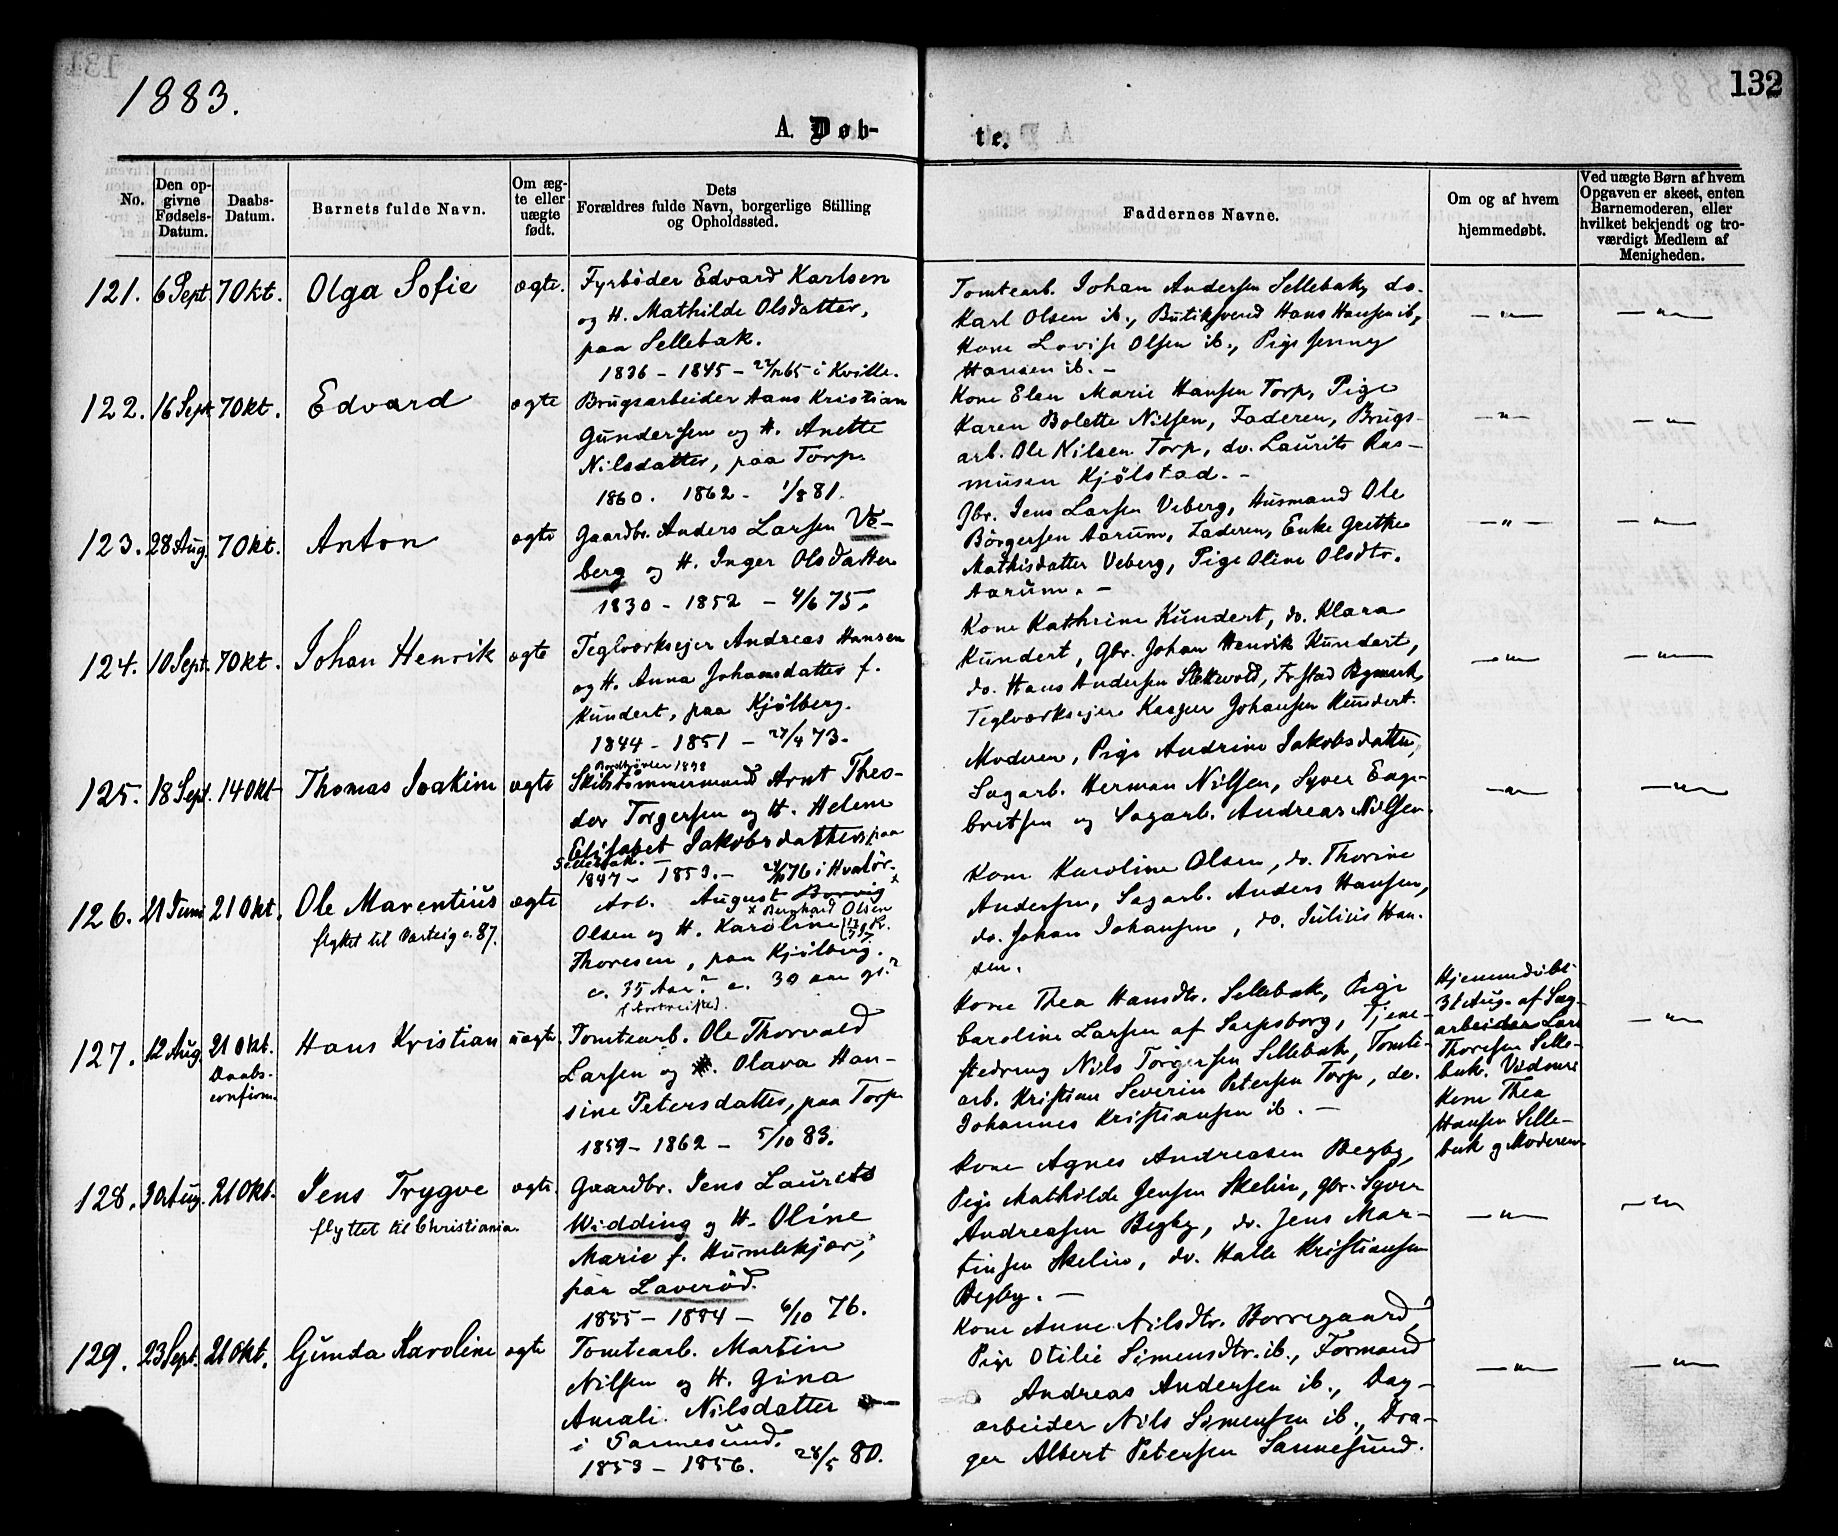 1883.
132
A. Døb-
te.
No.
Den op-
givne
Fødsels-
Datum.
Daabs-
Datum.
Barnets fulde Navn.
Om æg-
te eller
uægte
født.
Dets
Forældres fulde Navn, borgerlige Stilling
og Opholdssted.
Faddernes Navne.
Om og af hvem
hjemmedøbt.
Ved uægte Børn af hvem
Opgaven er skeet, enten
Barnemoderen, eller
hvilket bekjendt og tro-
værdigt Medlem af
Menigheden.
121. 6 Sept. 7 Okt. Olga Sofie ægte.
Fyrbøder Edvard Karlsen
og H. Mathilde Olsdatter,
paa Sellebak.
1836 - 1845 - 65 i Kville.
Tomtearb. Johan Andersen Sellebak, do.
Karl Olsen ib., Butiksvend Hans Hansen ib,
Kone Lovise Olsen ib., Pige Jenny
Hansen ib. -
—"— —"—
122. 16 Sept. 7 Okt. Edvard ægte
Brugsarbeider Hans Kristian
Gundersen og H. Anette
Nilsdatter, paa Torp.
1860. 1862 - 1/8 81.
Kone Elen Marie Hansen Torp, Pige
Karen Bolette Nilsen, Faderen, Brugs-
arb. Ole Nilsen Torp, do. Laurits Ras-
musen Kjølstad. -
—"— —"—
123. 28 Aug. 7 Okt. Anton ægte
Gaardbr. Anders Larsen Ve-
berg og H. Inger Olsdatter
1830 - 1852 - 4/6 75.
Gbr. Jens Larsen Veberg, Husmand Ole
Børgersen Aarum, Faderen, Enke Grethe
Mathisdatter Veberg, Pige Oline Olsdtr.
Aarum. -
—"— —"—
124. 10 Sept. 7 Okt. Johan Henrik ægte
Teglværksejer Andreas Hansen
og H. Anna Johansdatter f.
Kundert, paa Kjølberg.
1844 - 1851 - 27/4 73.
Kone Kathrine Kundert, do. Klara
Kundert, Gbr. Johan Henrik Kundert,
do. Hans Andersen Slettevold, Fr.stad Bymark,
Teglværksejer Kasper Johansen Kundert.
—"— —"—
125. 18 Sept. 14 Okt Thomas Joakim ægte
1898
Skibstømmermand Arnt Theo-
dor Torgersen og H. Helene
Elisabet Jakobsdatter, paa
Sellebak. -
1847 - 1853. - 76 i Hvalør.
Moderen, Pige Andrine Jakobsdatter,
Sagarb. Herman Nilsen, Syver Enge-
britsen og Sagarb. Andreas Nilsen.
—"— —"—
126. 21 Juni 21 Okt. Ole Marentius ægte
flyttet til Varteig c. 87.
Arb. August Borvig x
x Bernhard Olsen
Olsen og H. Karoline
Thoresen, paa Kjølberg.
c. 35 Aar? c. 30 aar gl.?
Kone Karoline Olsen, do. Thorine
Andersen, Sagarb. Anders Hansen,
do. Johan Johansen, do. Julius Han-
sen.
127. 12 Aug. 21 Okt. Hans Kristian uægte
Daabs-
confirm.
Tomtearb. Ole Thorvald
Larsen og Olava Han-
sine Petersdatter, paa Torp
1859 - 1862 - 5/10 83.
Kone Thea Hansdtr. Sellebak, Pige
Caroline Larsen af Sarpsborg, Tjene-
stedreng Nils Torgersen Sellebak, Tomte-
arb. Kristian Severin Petersen Torp, do.
Johannes Kristiansen ib. -
Hjemmedøbt
31 Aug. af Sag-
arbeider Lars
Thoresen Selle-
bak. Vidner:
Kone Thea
Hansen Selle-
bak og Moderen.
—"—
128. 30 Aug. 21 Okt. Jens Trygve ægte
flyttet til Christiania.
Gaardbr. Jens Laurits
Widding og H. Oline
Marie f. Humlekjær,
paa Laverød.
1855 - 1854 - 6/10 76.
Kone Agnes Andreasen Begby,
Pige Mathilde Jensen Skelin, Gbr. Syver
Andreasen Begby, do. Jens Mar-
tinsen Skelin, do. Halle Kristiansen
Begby. -
—"— —"—
129. 23 Sept. 21 Okt. Gunda Karoline ægte
Tomtearb. Martin
Nilsen og H. Gina
Amali. Nilsdatter
i Sannesund.
1853 - 1856. 28/5 80.
Kone Anne Nilsdtr. Borregaard,
Pige Otilie Simensdtr. ib., Formand
Andreas Andersen ib., Dag-
arbeider Nils Simensen ib., Dra-
ger Albert Petersen Sannesund.
—"— —"—